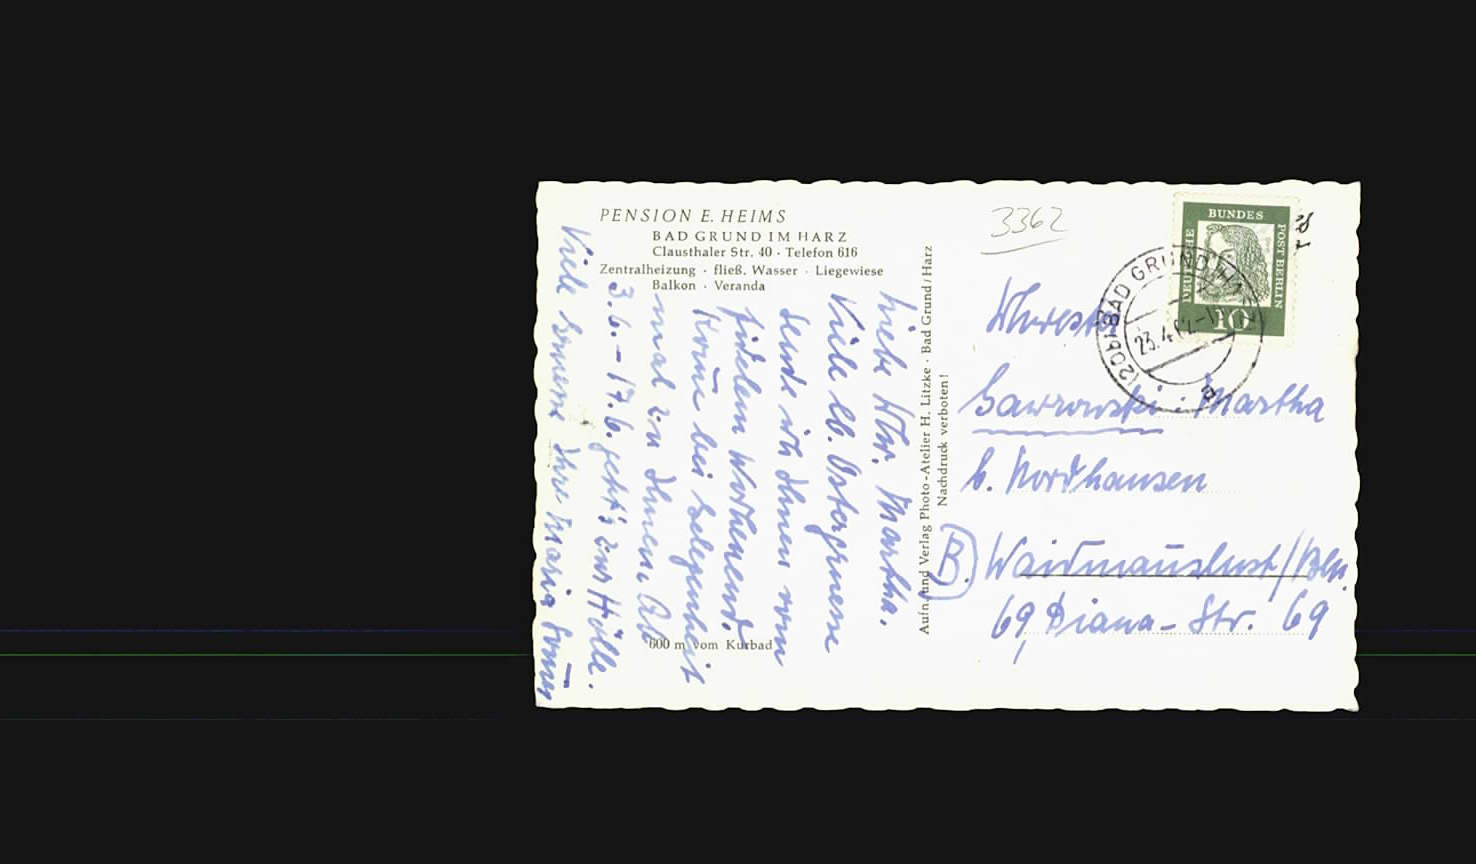 PENSION E. HEIMS
BAD GRUND IM HARZ
Clausthaler Str. 40 · Telefon 616
Zentralheizung · fließ. Wasser · Liegewiese
Balkon · Veranda
600 m vom Kurbad
Liebe Schw. Martha.
Viele lb. Ostergrüsse
sende ich Ihnen vom
fidelen Wochenend.
Komme bei Gelegenheit
mal zu Ihnen. Ab
3.6. – 17.6. geht's zur Hölle.
Viele Ihre Maria
Aufn. und Verlag Photo-Atelier H. Litzke · Bad Grund/Harz
Nachdruck verboten!
3362
DEUTSCHE BUNDESPOST BERLIN
10
(20b) BAD GRUND
23.4.62
a
Schwester
Martha
b. Nordhausen
B. Waidmannslust/Bln.
69, Diana-Str. 69